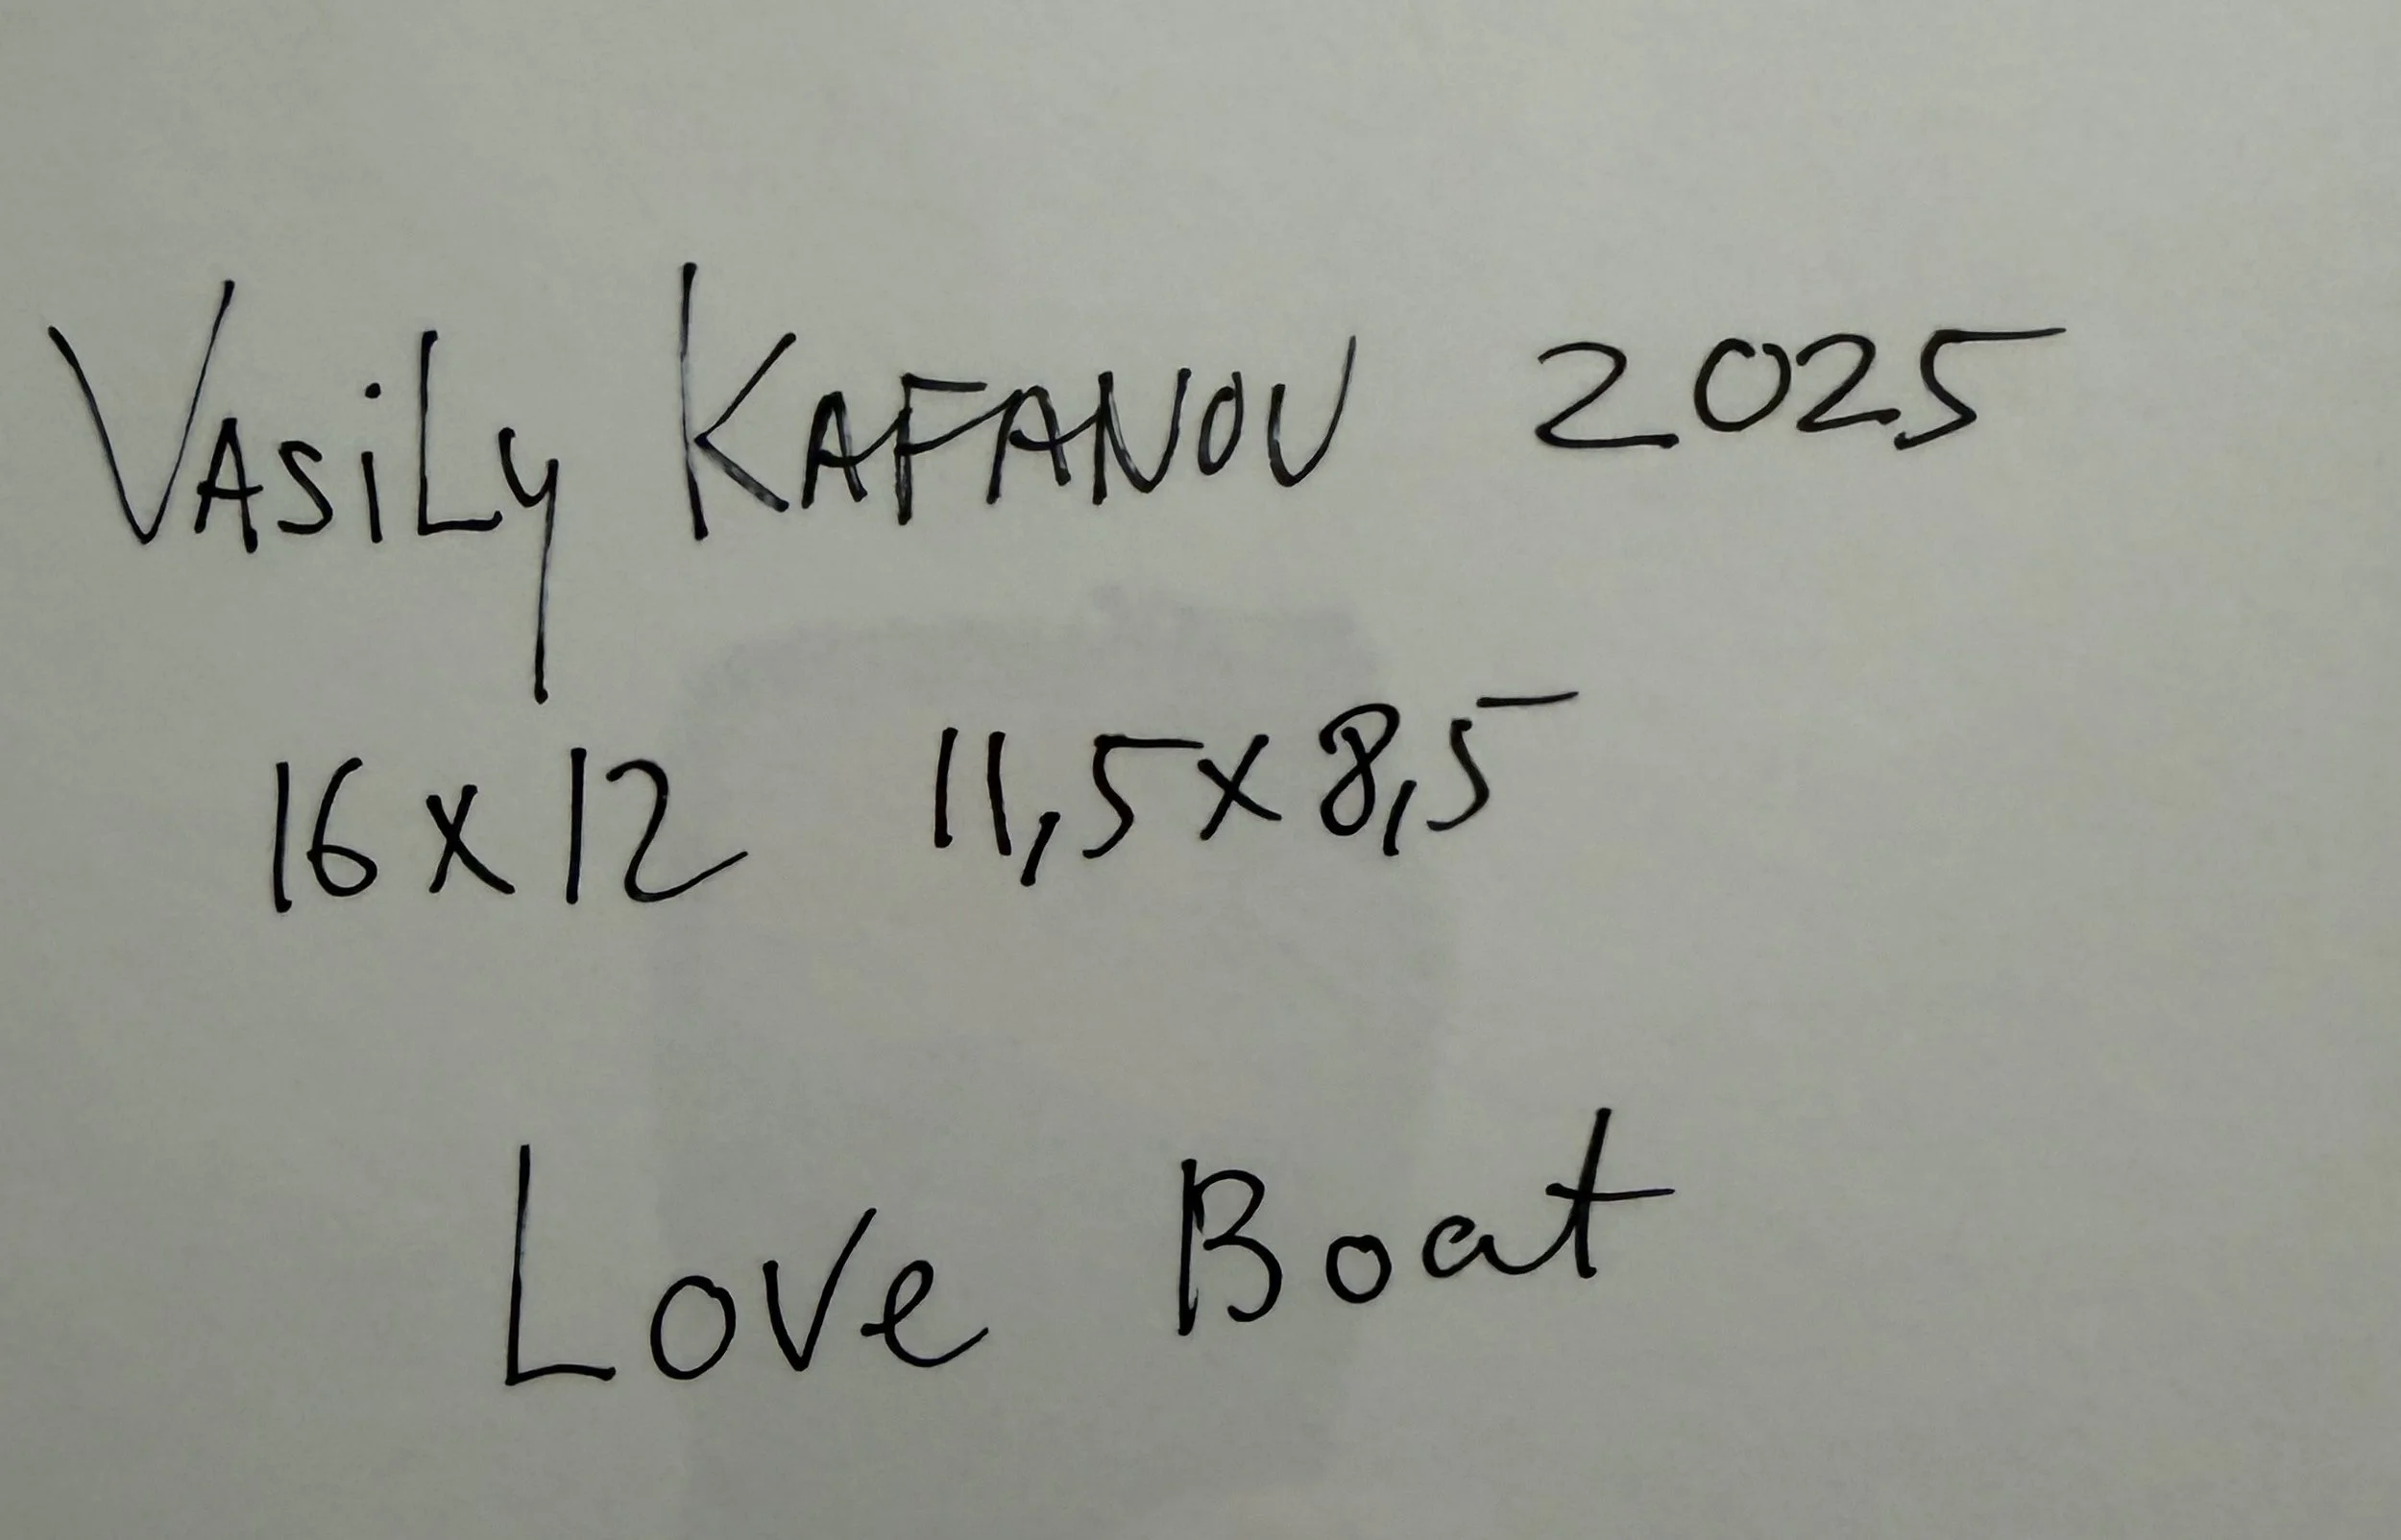 VASiLy KAFANOV 2025
16 x 12 11,5 x 8,5
Love Boat